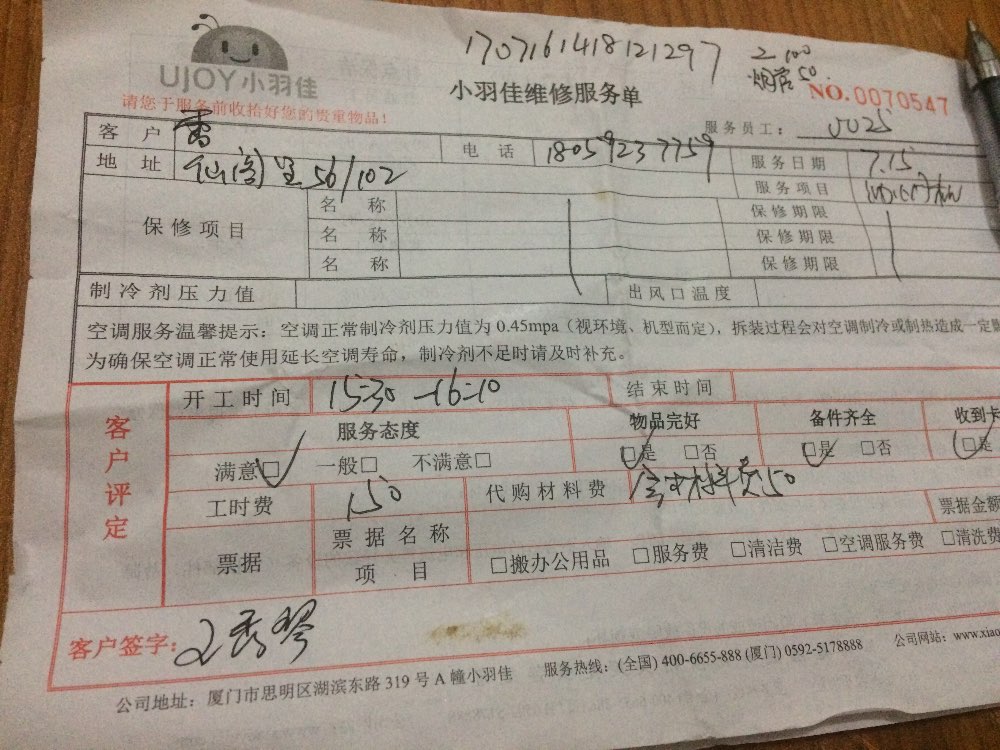 1707161418121297 2 100
UJOY小羽佳 烟管50
小羽佳维修服务单 NO.0070547
请您于服务前收拾好您的贵重物品!
服务员工: 0025
客户 雷 电话 18059237759 服务日期 7.15
地址 仙阁里56/102 服务项目
保修项目 名称 保修期限
名称 保修期限
名称 保修期限
制冷剂压力值 出风口温度
空调服务温馨提示:空调正常制冷剂压力值为0.45mpa(视环境、机型而定),拆装过程会对空调制冷或制热造成一定
为确保空调正常使用延长空调寿命,制冷剂不足时请及时补充。
客户评定
开工时间 15:30-16:10 结束时间
服务态度 物品完好 备件齐全 收到卡
满意□ 一般□ 不满意□ □是 □否 □是 □否 □是
工时费 150 代购材料费 含材料费50
票据 票据名称 票据金额
项目 □搬办公用品 □服务费 □清洁费 □空调服务费 □清洗费
客户签字: 秀琴
公司地址:厦门市思明区湖滨东路319号A幢小羽佳 服务热线:(全国)400-6655-888(厦门)0592-5178888 公司网站:www.xiao